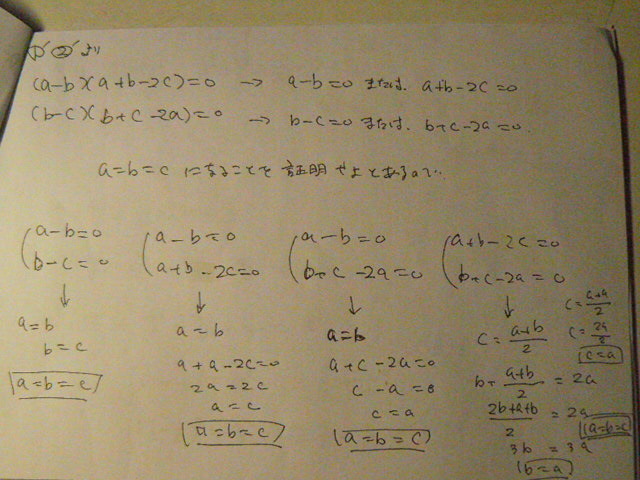 ①'②'より
(a-b)(a+b-2c)=0 → a-b=0 または、a+b-2c=0
(b-c)(b+c-2a)=0 → b-c=0 または、b+c-2a=0.
a=b=c になることを証明せよとあるので…
a-b=0
b-c=0
↓
a=b
b=c
a=b=c
a-b=0
a+b-2c=0
↓
a=b
a+a-2c=0
2a=2c
a=c
a=b=c
a-b=0
b+c-2a=0
↓
a=b
a+c-2a=0
c-a=0
c=a
a=b=c
a+b-2c=0
b+c-2a=0
↓
c=\frac{a+b}{2}
b+\frac{a+b}{2}=2a
\frac{2b+a+b}{2}=2a
3b=3a
b=a
c=\frac{a+a}{2}
c=\frac{2a}{2}
c=a
a=b=c